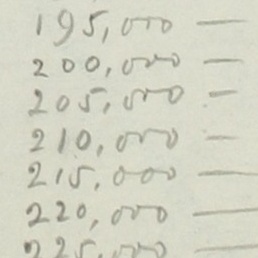 195,000 —
200,000 —
205,000 —
210,000 —
215,000 —
220,000 —
225,000 —